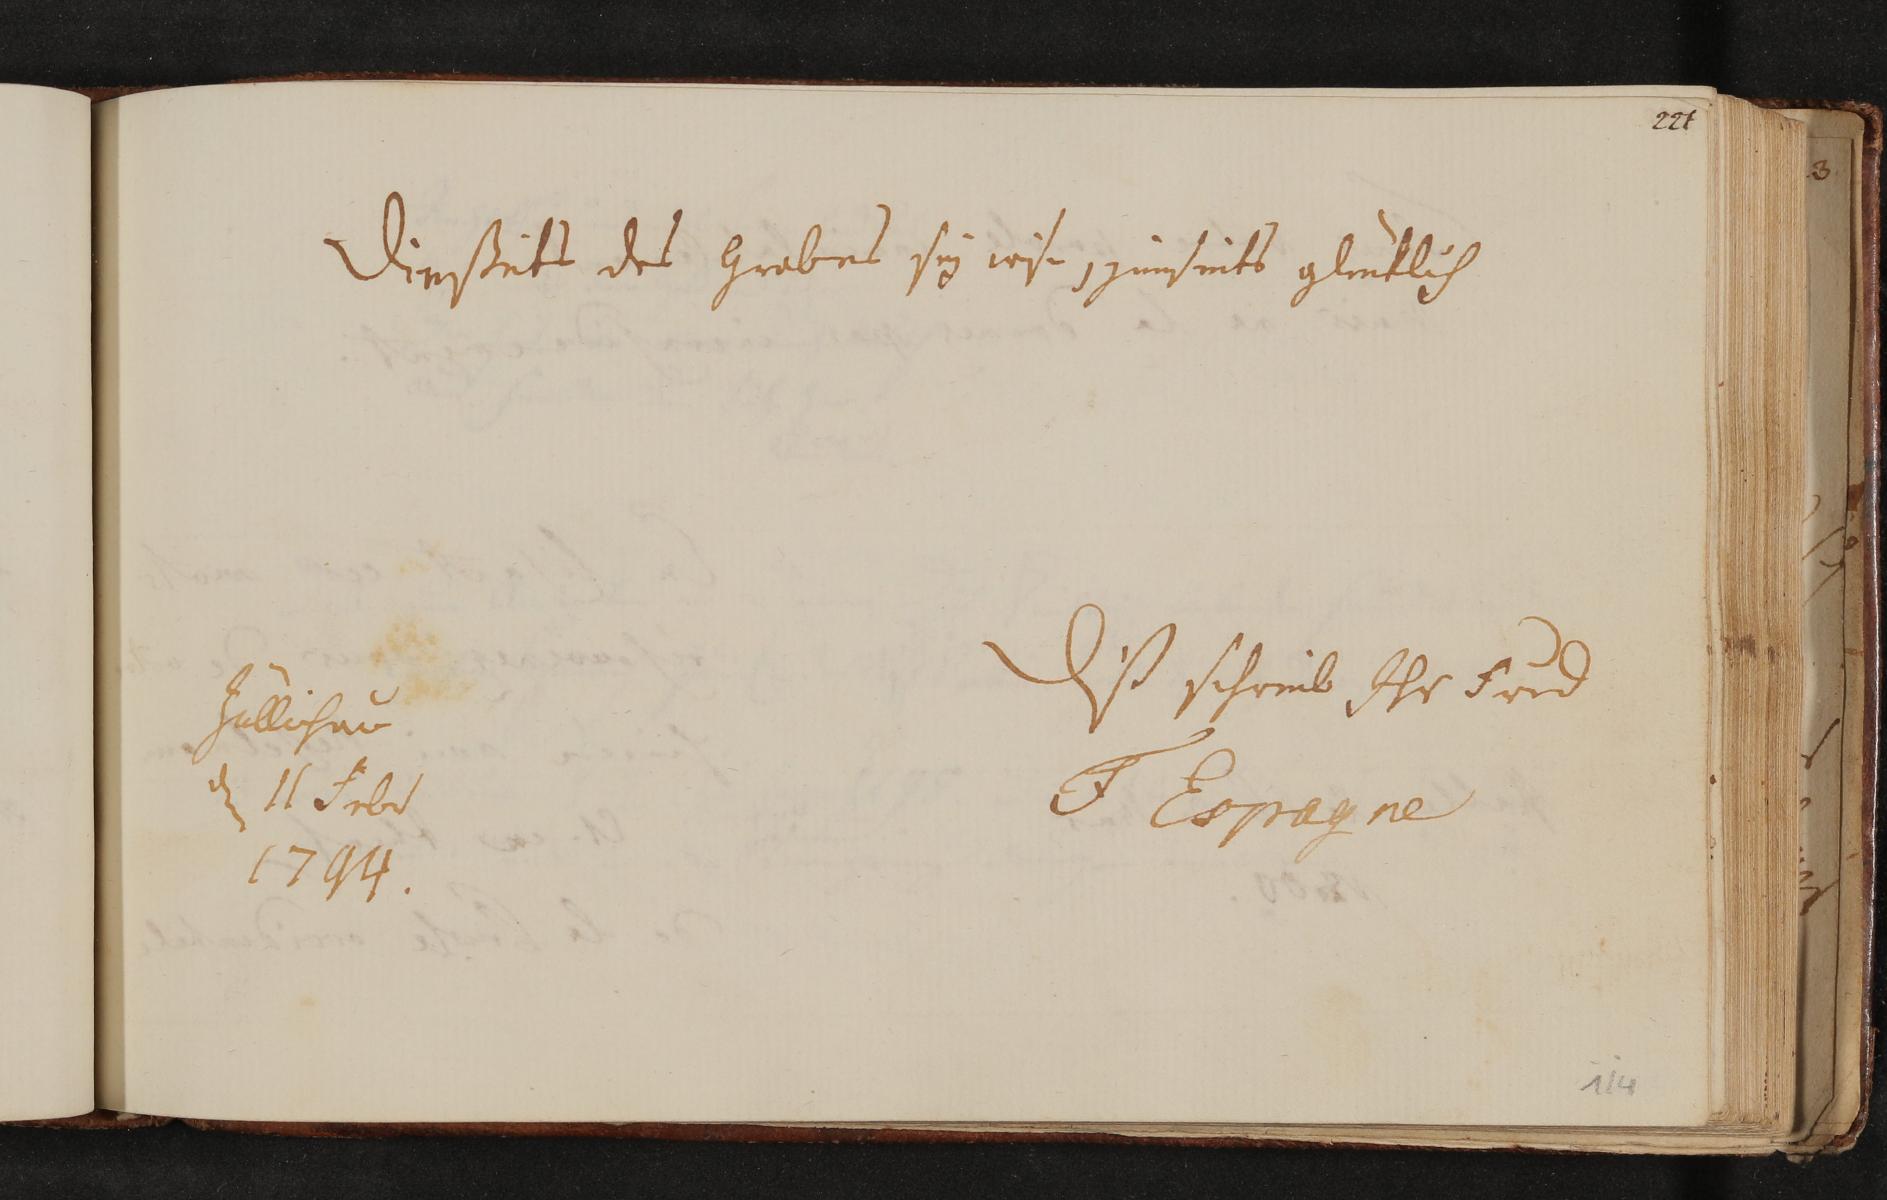 221
Dießeits des Grabes sey weise, jenseits glüklich
Diß schrieb Ihr Freund
F Espagne
Züllichau
d 11 Febr
1794.
114
3